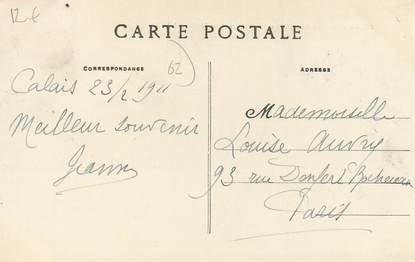 12 €
CARTE POSTALE
CORRESPONDANCE
62
ADRESSE
Calais 23/2 1911
Meilleur souvenir
Jeanne
Mademoiselle
Louise Auvry
93 rue Denfert Rochereau
Paris